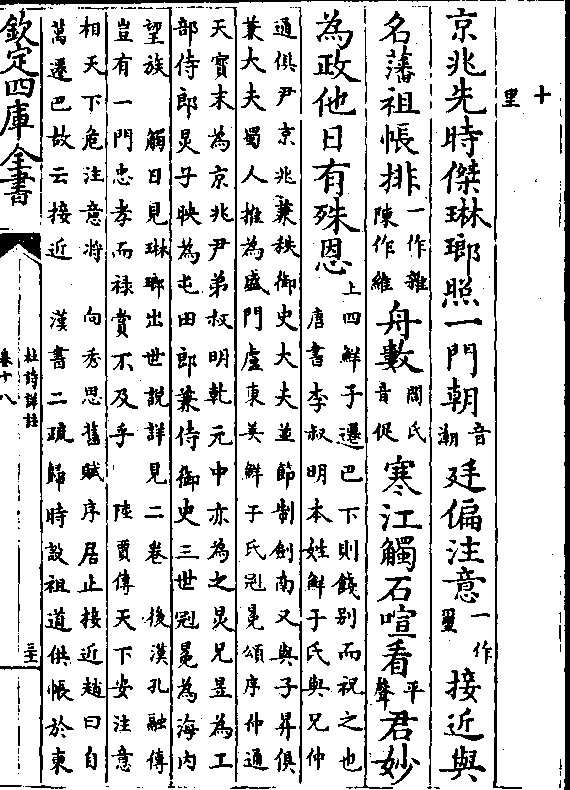 十
里
京兆先時傑琳瑯照一門朝音潮廷偏注意一作 接近與
名藩祖帳排一作雜陳作維舟數閻氏音促寒江觸石喧看平聲君妙
為政他日有殊恩上四鮮于遷巴下則餞別而祝之也
唐書李叔明本姓鮮于氏與兄仲
通俱尹京兆兼秩御史大夫並節制劍南又與子昇俱
兼大夫蜀人推為盛門盧東美鮮于氏冠冕頌序仲通
天寶末為京兆尹弟叔明乾元中亦為之炅兄昱為工
部侍郎炅子映為屯田郎兼侍御史三世冠冕為海内
望族 觸日見琳瑯出世說詳見二卷 後漢孔融傳
豈有一門忠孝而祿賞不及乎 陸賈傳天下安注意
相天下危注意將 向秀思舊賦序居止接近趙曰自
萬遷巴故云接近 漢書二疏歸時設祖道供帳於東
欽定四庫全書
杜詩詳註
卷十八